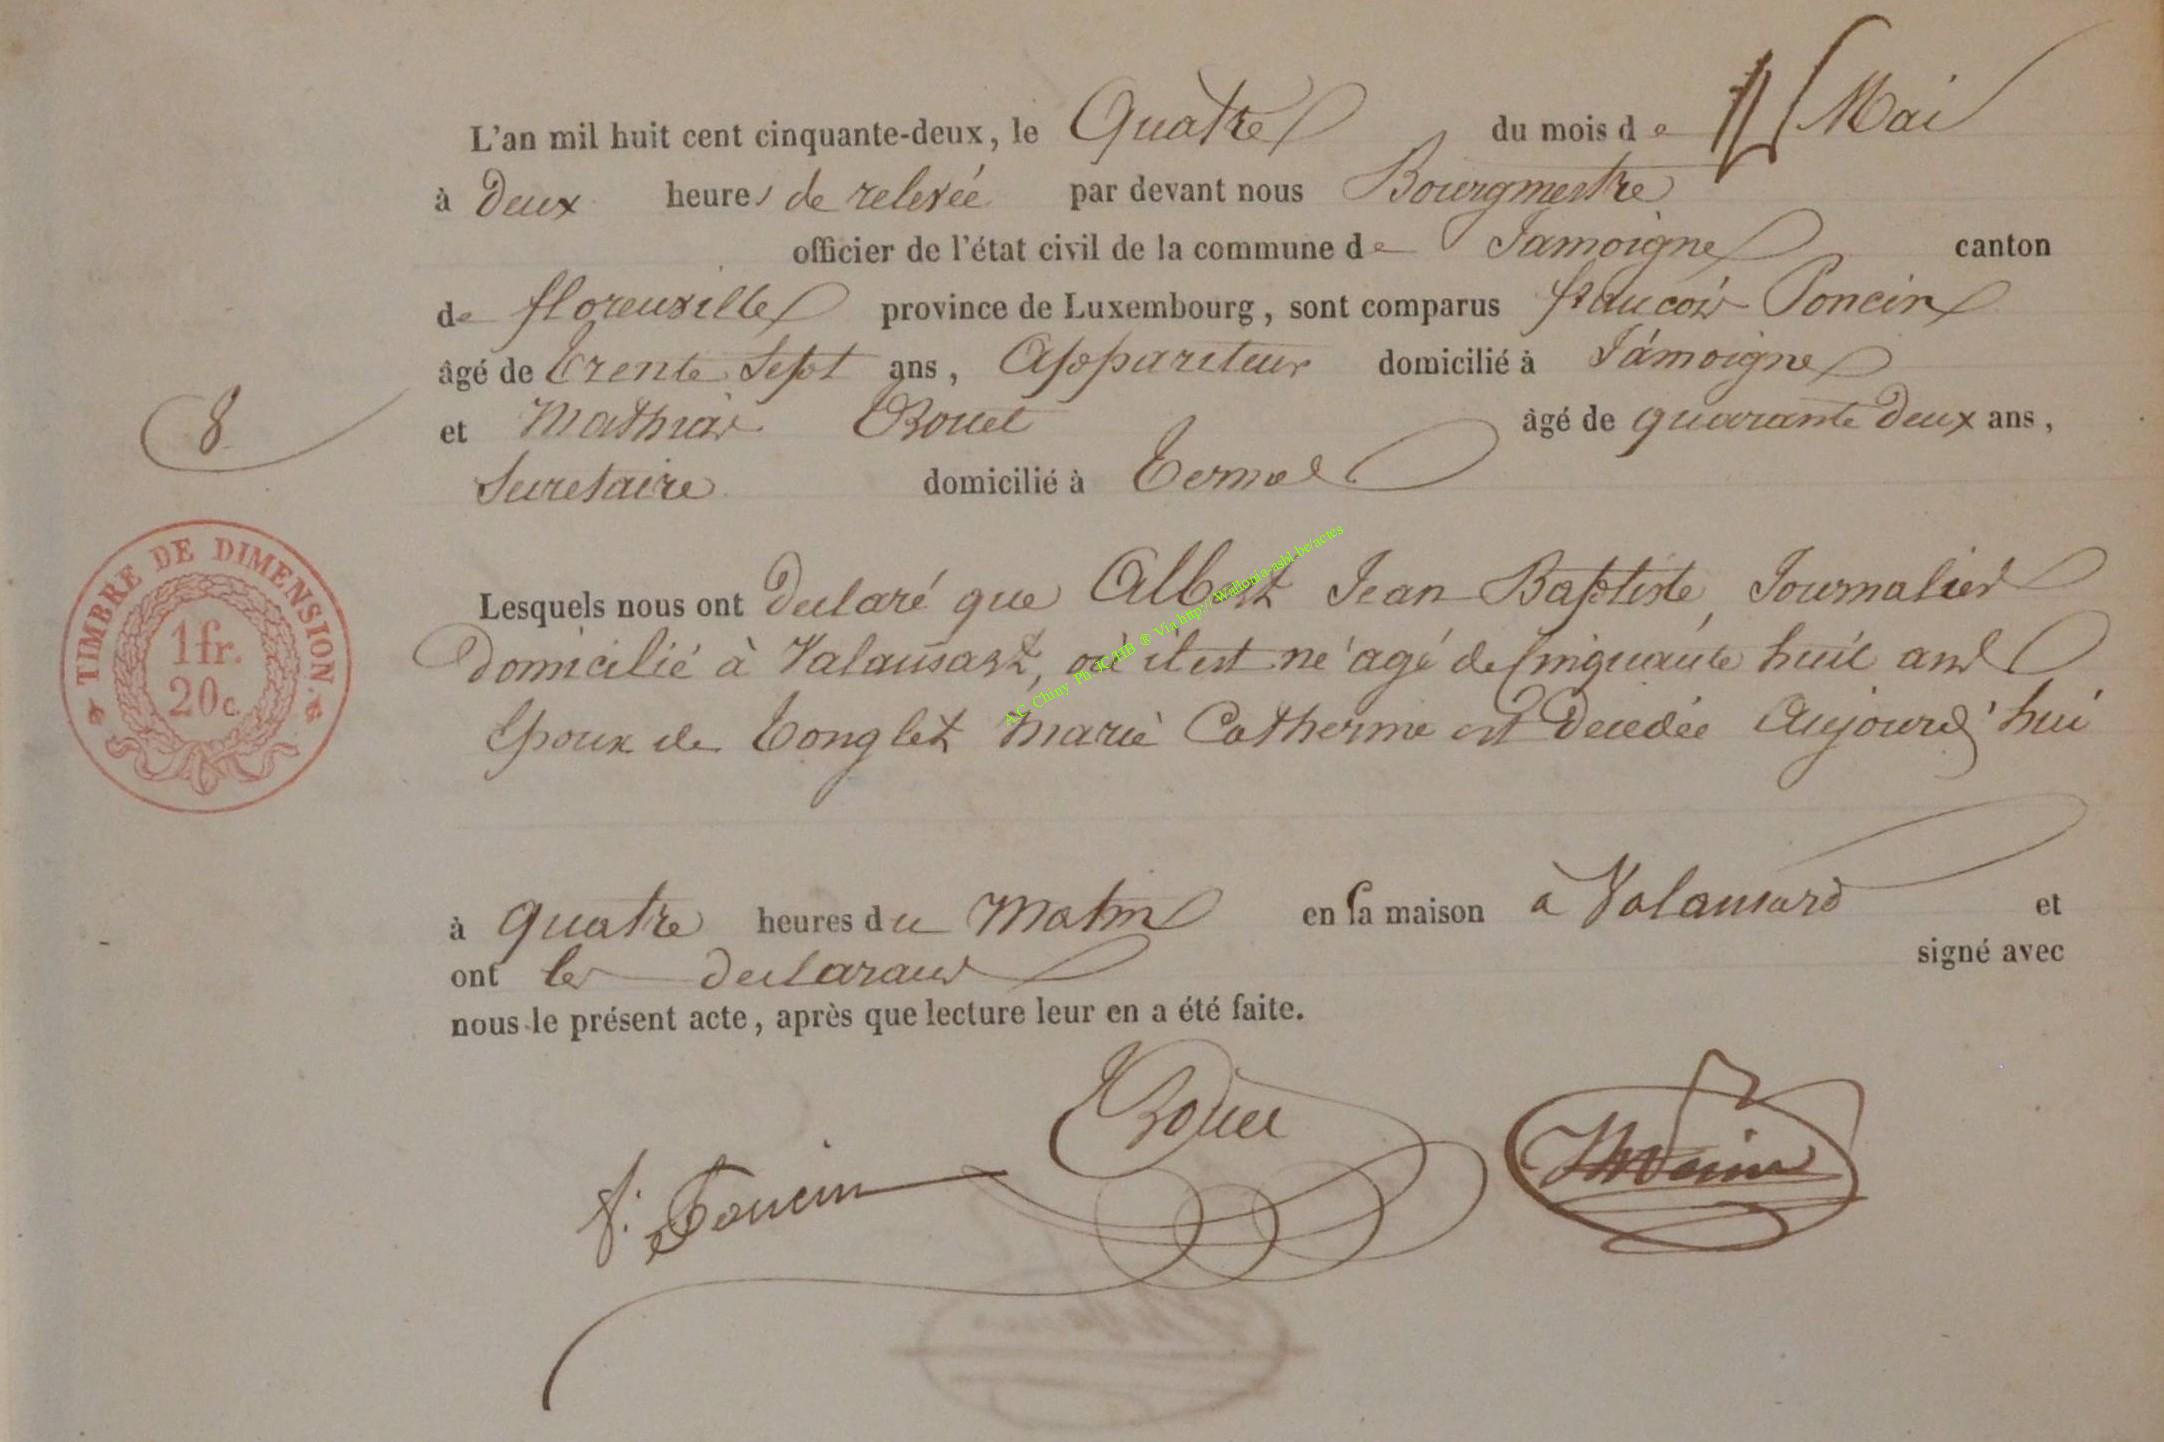 L'an mil huit cent cinquante-deux, le Quatre du mois de Mai
à Deux heures de relevée par devant nous Bourgmestre
officier de l'état civil de la commune de Jamoigne canton
de florenville province de Luxembourg, sont comparus françois Poncin
âgé de Trente Sept ans, Appariteur domicilié à Jamoigne
et Mathias Rouet âgé de quarante Deux ans,
Secretaire domicilié à Termes
8
Lesquels nous ont Declaré que Albert Jean Baptiste, Journalier
Domicilié à Valansart, où il est né agé de Cinquante huit ans
Epoux de Tonglet Marie Catherine est Decedée Aujourd'hui
à quatre heures du Matin en sa maison à Valansard et
ont les declarans signé avec
nous le présent acte, après que lecture leur en a été faite.
TIMBRE DE DIMENSION.
1fr.
20c
A.C. Chiny Ph. ® Via http://Wallonia-asbl.be/actes
Rouet
f. Poncin